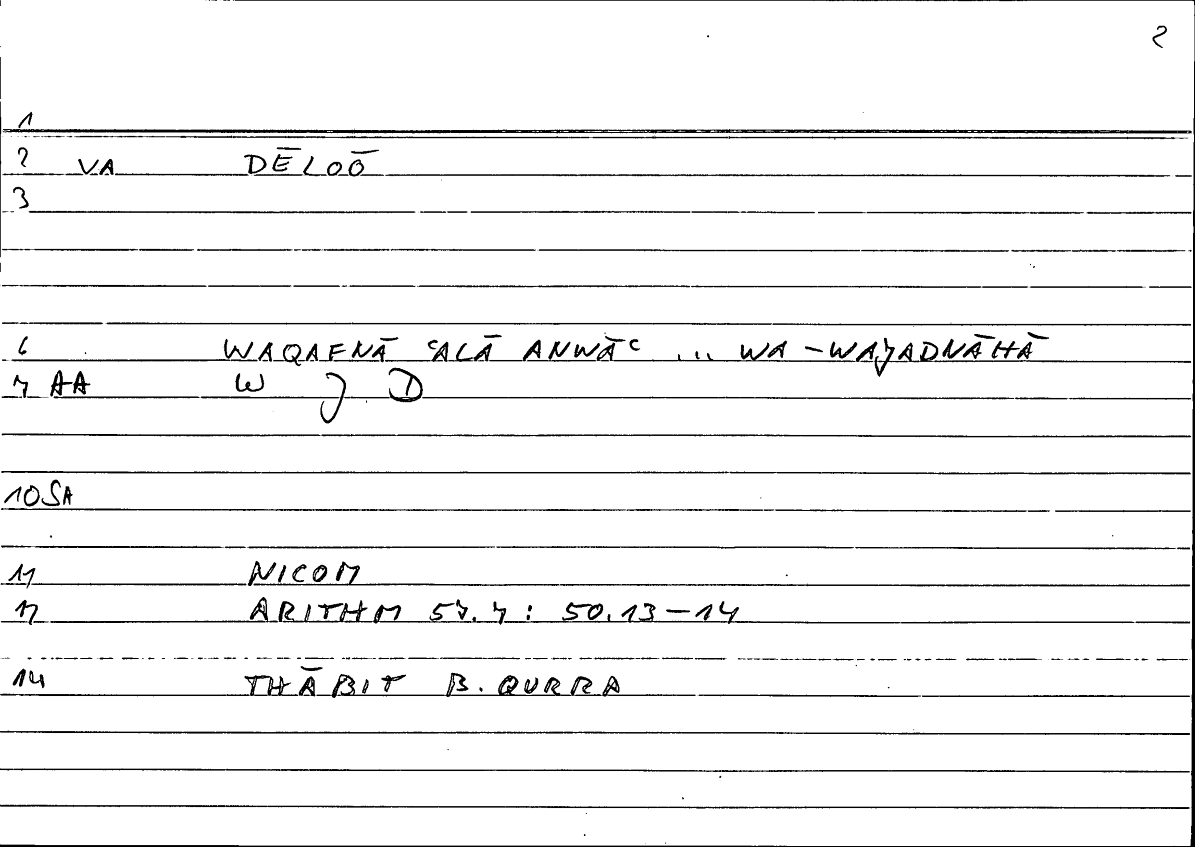 2
1
2 VA DĒLOŌ
3
6 WAQAFNĀ ʿALĀ ANWĀʿ ... WA-WAJADNĀHĀ
7 AA W J D
10 SA
11 NICOM
12 ARITHM 57.7 : 50.13-14
14 THĀBIT B. QURRA